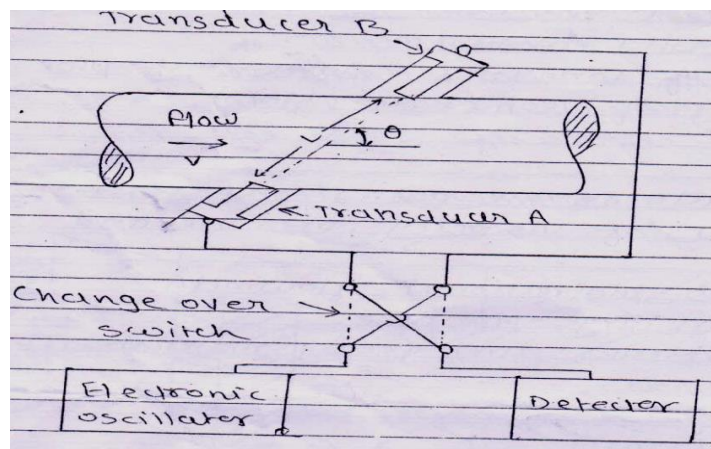 Transducer B
Flow
V
L
θ
Transducer A
Change over
switch
Electronic
oscillator
Detector